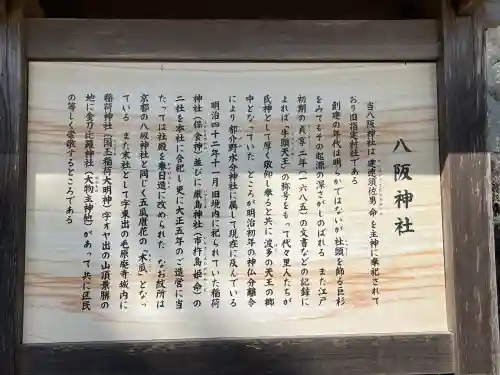 八阪神社
当八阪神社は 建速須佐男命を主神に奉祀されて
おり旧指定村社である
創建の年代は明らかではないが 社頭を飾る巨杉
をみてもその起源の深さがしのばれる また江戸
初期の貞享二年(一六八五)の文書などの記録に
よれば「牛頭天王」の称号をもって代々里人たちが
氏神として厚く敬師し奉ると共に 波多の天王の郷
中となっていた ところが明治初年の神仏分離令
により 都介野水分神社に属して現在に及んでいる
明治四十二年十一月旧境内に祀られていた稲荷
神社(保食神)並びに厳島神社(市杵島姫命)の
二社を本社に合祀し 更に大正五年のご造営に当
たっては社殿を春日造に改められた なお紋所は
京都の八阪神社と同じく五瓜唐花の「木瓜」となっ
ている また末社として字東出の毛原極寺城内に
稲荷神社(国玉稲荷大明神)字オヤ出の山頂景勝の
地に金刀比羅神社(大物主神他)があって 共に区民
の等しく崇敬するところである